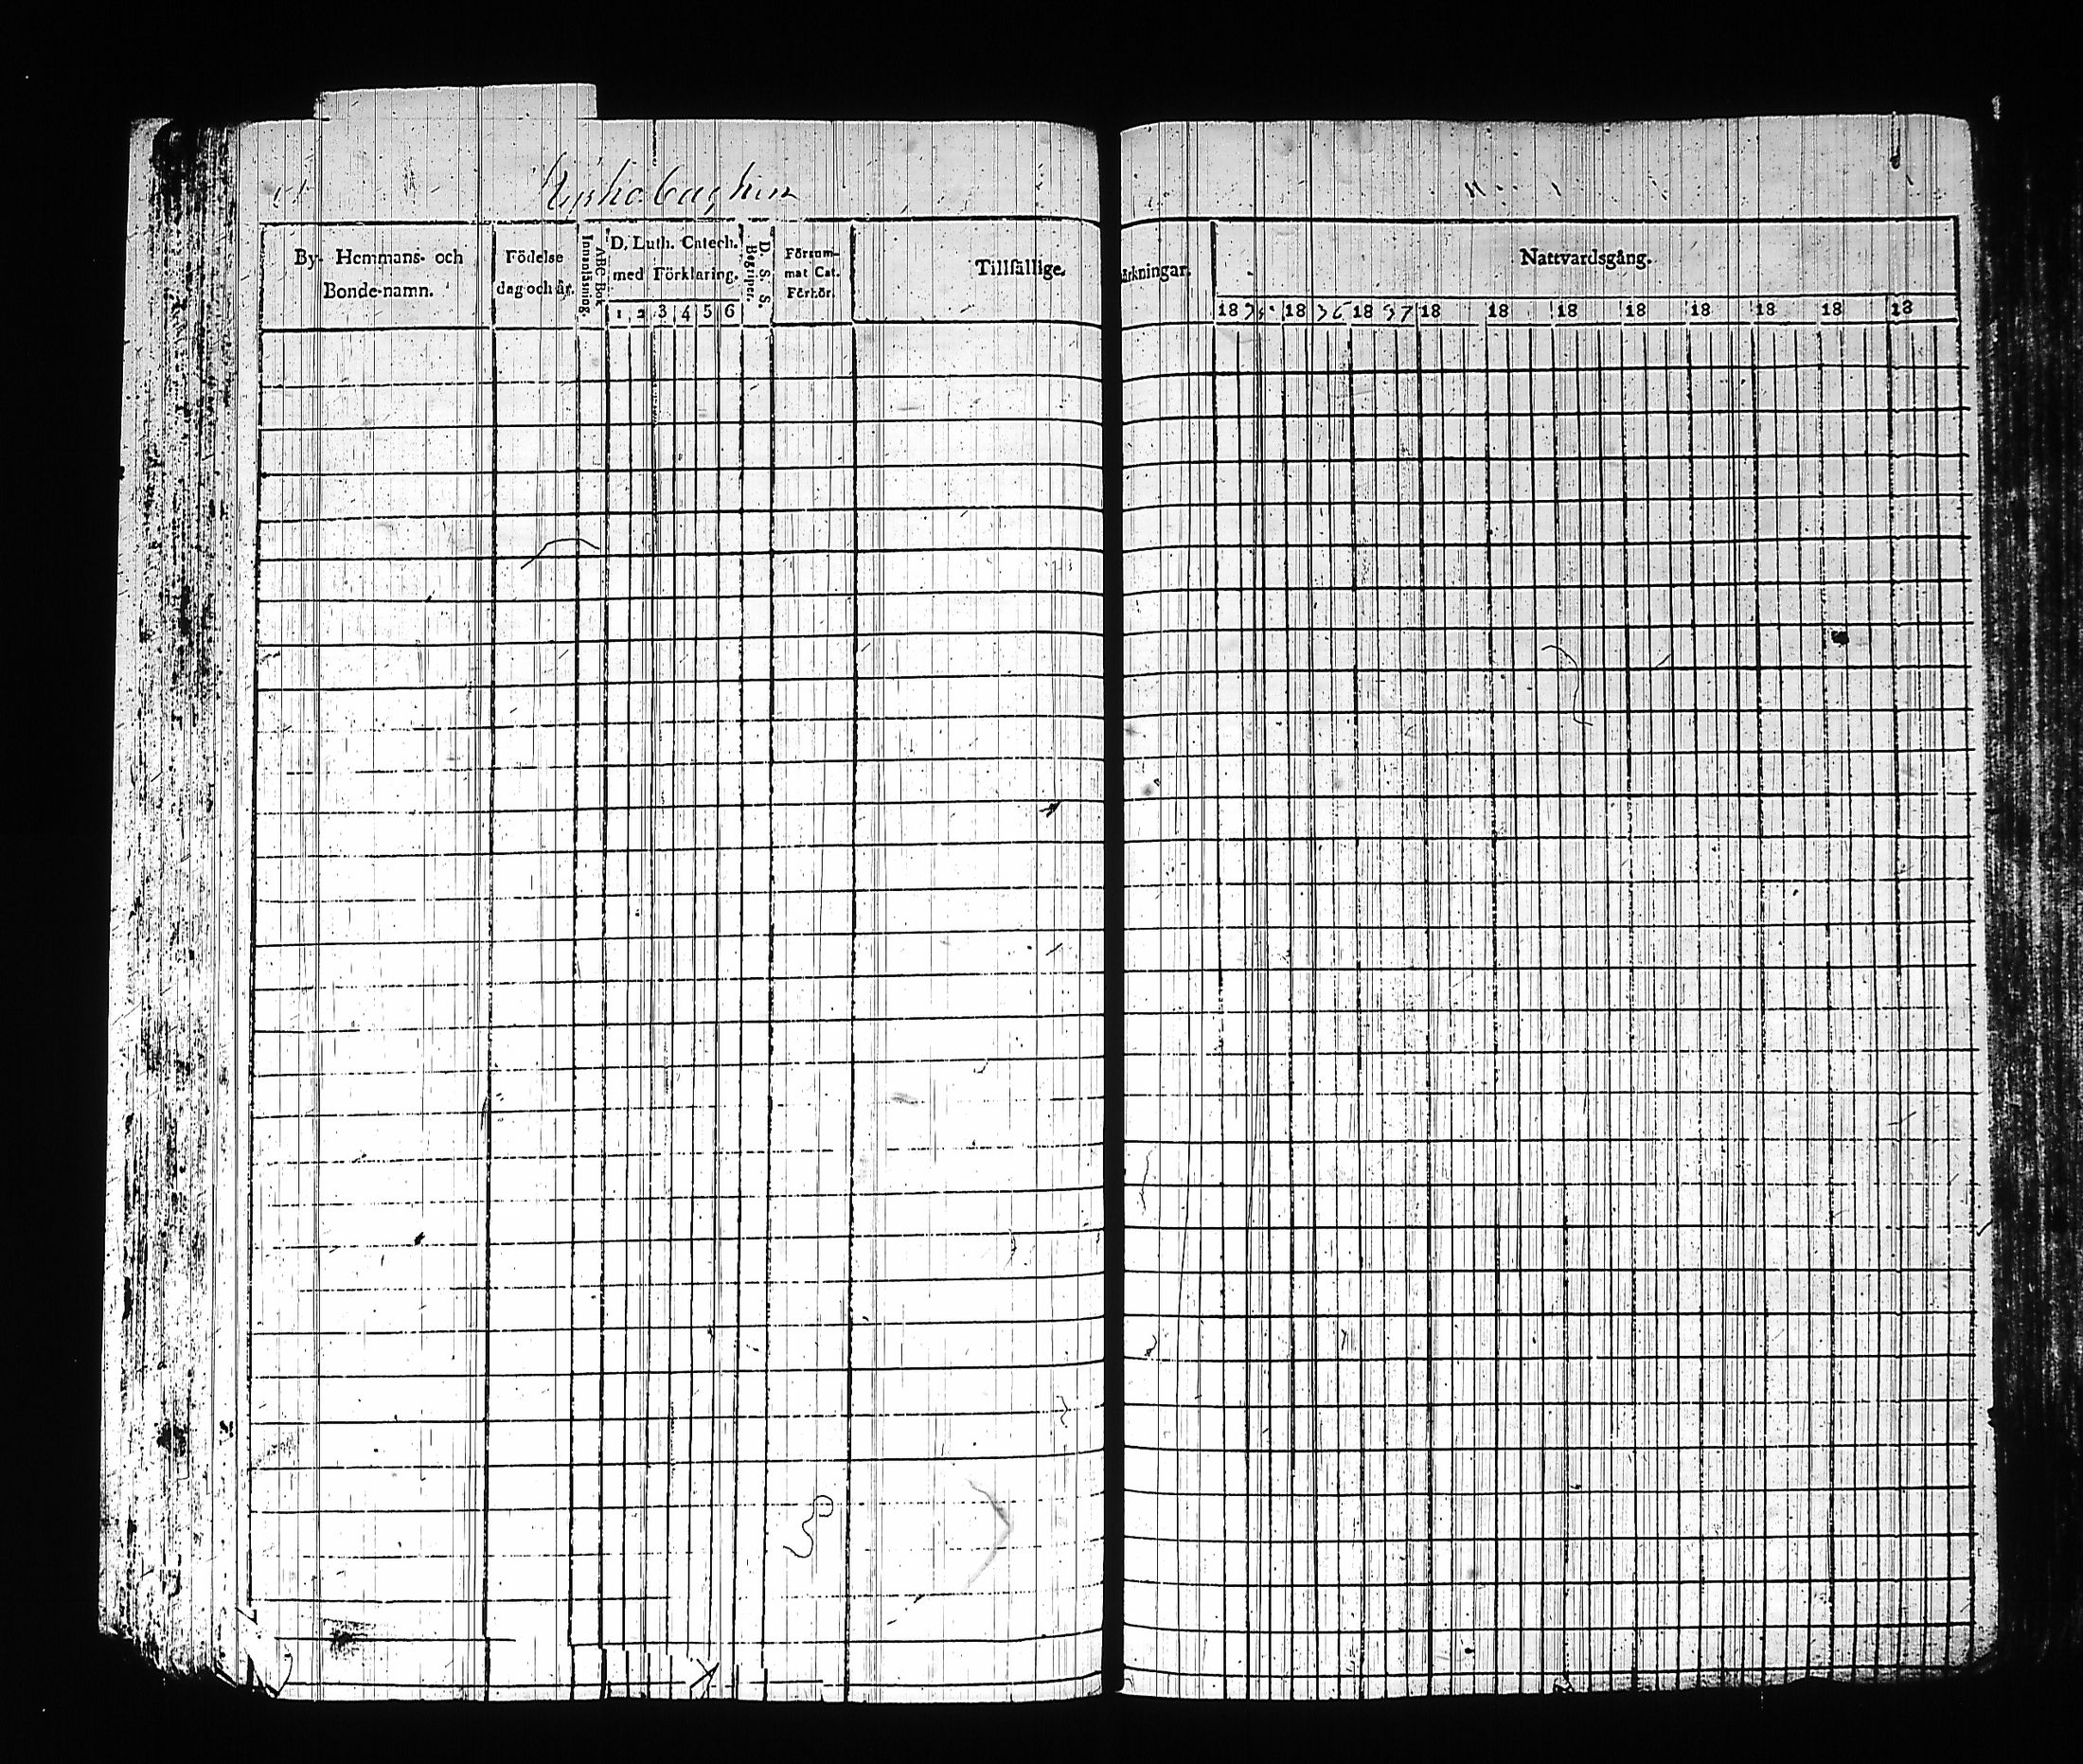 By- Hemmans- och
Bonde-namn.
Födelse
dag och år.
ABC-Bok
Innanläsning.
D. Luth. Catech.
med Förklaring.
1 2 3 4 5 6
D. S. S.
Begriper.
Försum-
mat Cat.
Förhör.
Tillfällige
ärkningar.
Nattvardsgång.
18 18 36 18 37 18 18 18 18 18 18 18 18